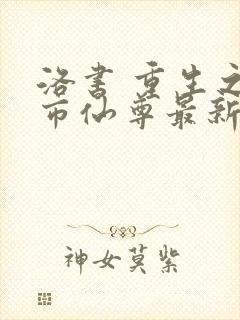 洛书 重生之
市仙尊最新
神女莫紫